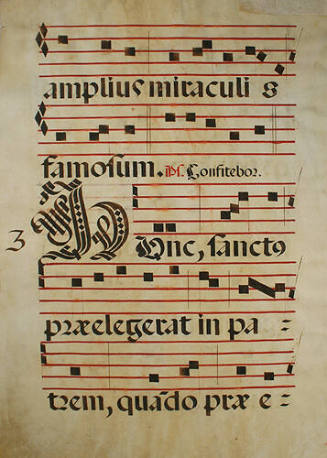 amplius miraculis
famosum. Ps. Confitebor.
3
Hunc, sanctꝰ
præelegerat in pa=
trem, quãdo præ e=